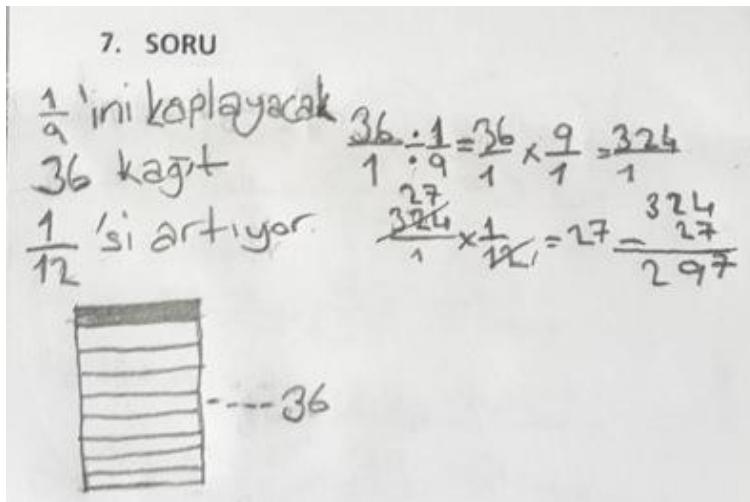 7. SORU
1/9 'ini kaplayacak
36 kağıt
1/12 'si artıyor.
36/1 ÷ 1/9 = 36/1 x 9/1 = 324/1
27
324/1 x 1/12 = 27
1
324
27
- 297
---- 36